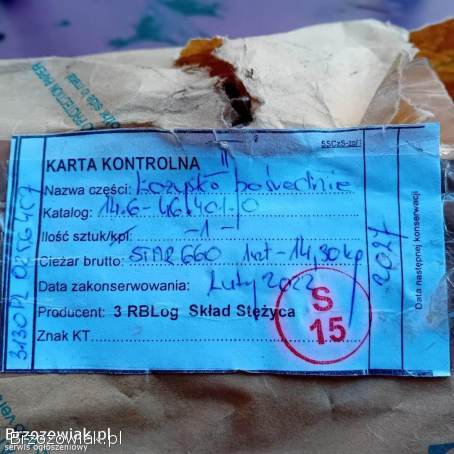 PROTECTION PAPER
SSCzS-zp/1
KARTA KONTROLNA II
Nazwa części: Łożysko pośrednie
Katalog: 14.6-46.401.0
Ilość sztuk/kpl. -1-
Ciężar brutto: STAR 660 1szt-14,30kg
Data zakonserwowania: Luty 2022
Producent: 3 RBLog Skład Stężyca
Znak KT
S
15
2027
Data następnej konserwacji
Brzozowiak.pl
serwis ogłoszeniowy
Brzozowiak.pl